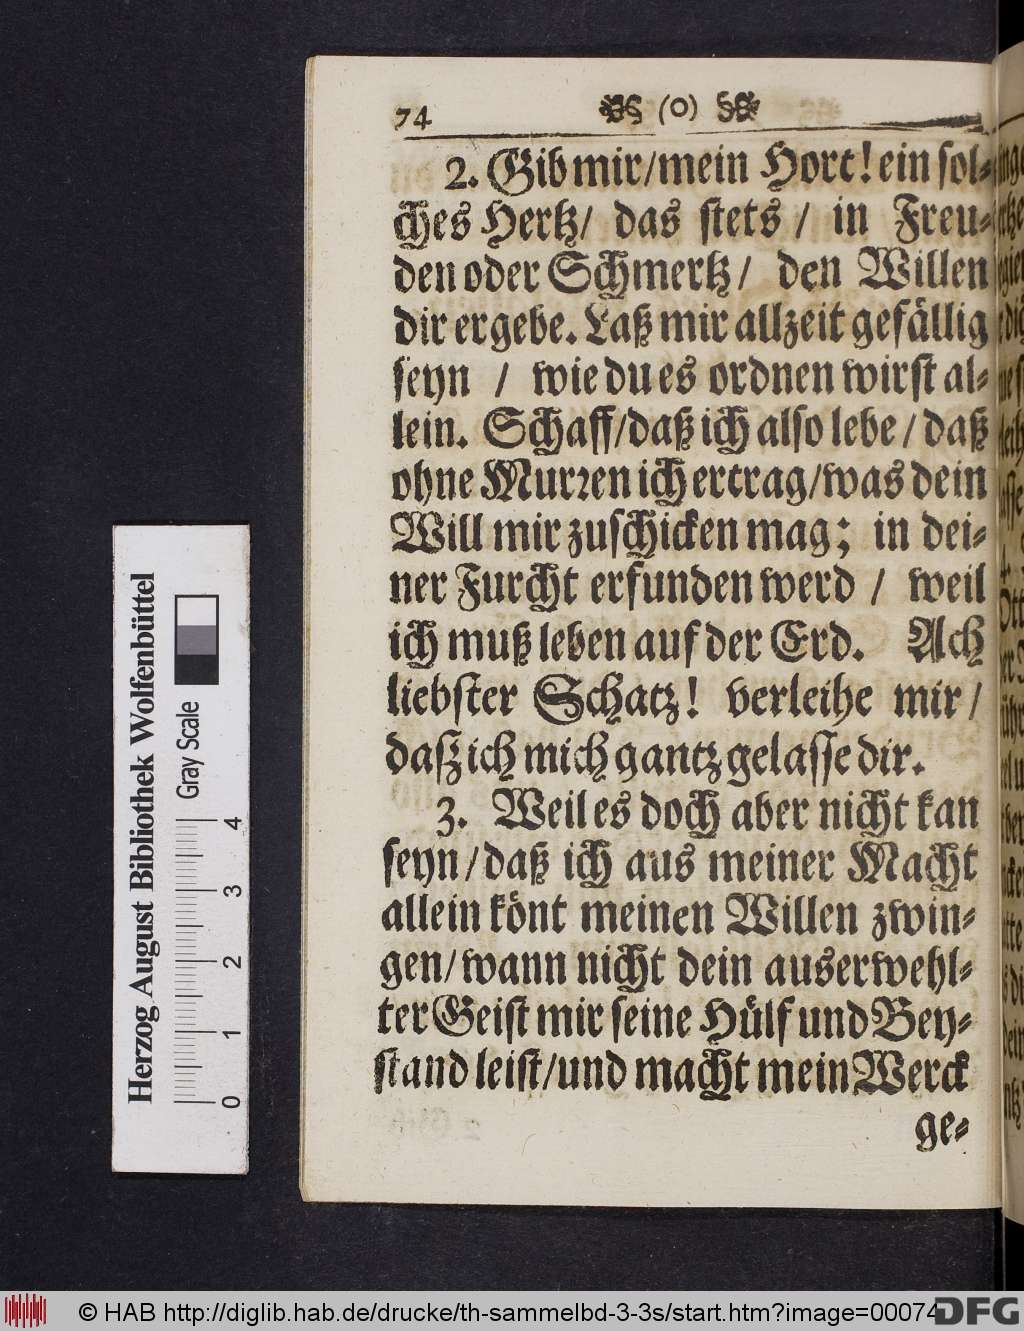 74 (o)
2. Gib mir/mein Hort! ein sol⸗
ches Hertz/ das stets / in Freu⸗
den oder Schmertz/ den Willen
dir ergebe. Laß mir allzeit gefällig
seyn / wie du es ordnen wirst al⸗
lein. Schaff/daß ich also lebe / daß
ohne Murꝛen ich ertrag/was dein
Will mir zuschicken mag; in dei⸗
ner Furcht erfunden werd / weil
ich muß leben auf der Erd. Ach
liebster Schatz! verleihe mir /
daß ich mich gantz gelasse dir.
3. Weil es doch aber nicht kan
seyn/daß ich aus meiner Macht
allein könt meinen Willen zwin⸗
gen/wann nicht dein auserwehl⸗
ter Geist mir seine Hülf und Bey⸗
stand leist/und macht mein Werck
ge⸗
Herzog August Bibliothek Wolfenbüttel
Gray Scale
0 1 2 3 4
© HAB http://diglib.hab.de/drucke/th-sammelbd-3-3s/start.htm?image=00074
DFG